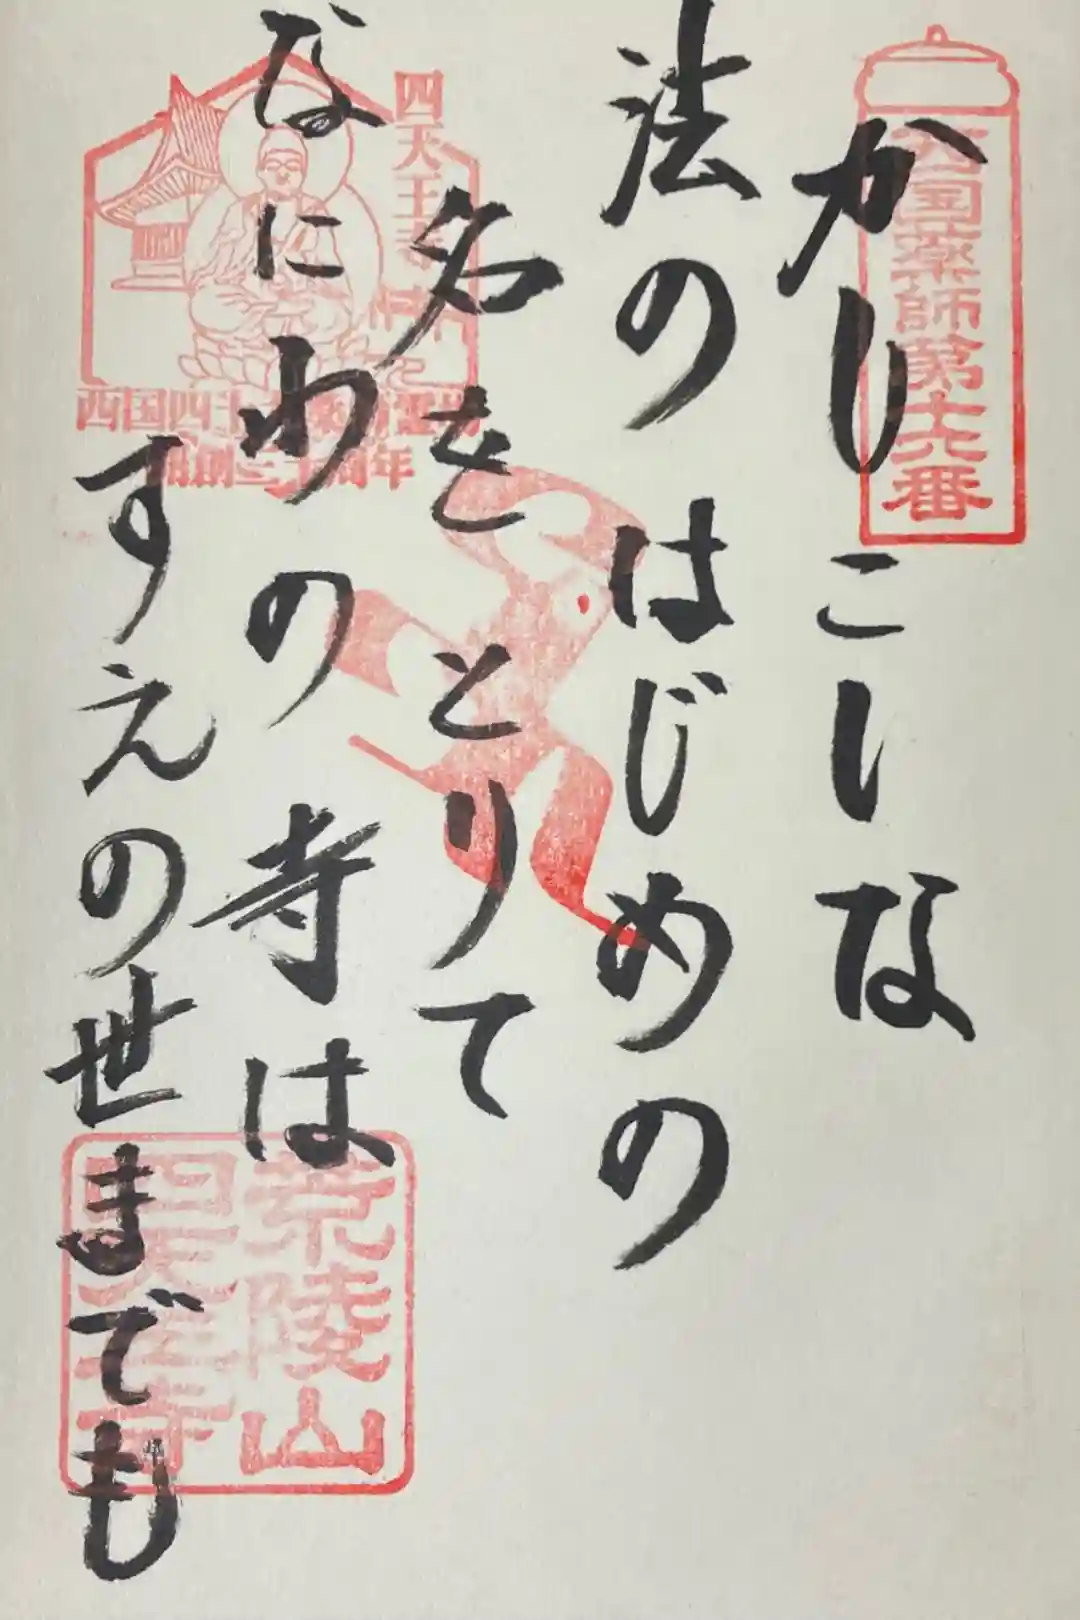 西国薬師第十六番
かしこしな
法のはじめの
名をとりて
なにわの寺は
すえの世までも
四天王寺
西国四十九薬師霊場
開創三十周年
荒陵山
四天王寺